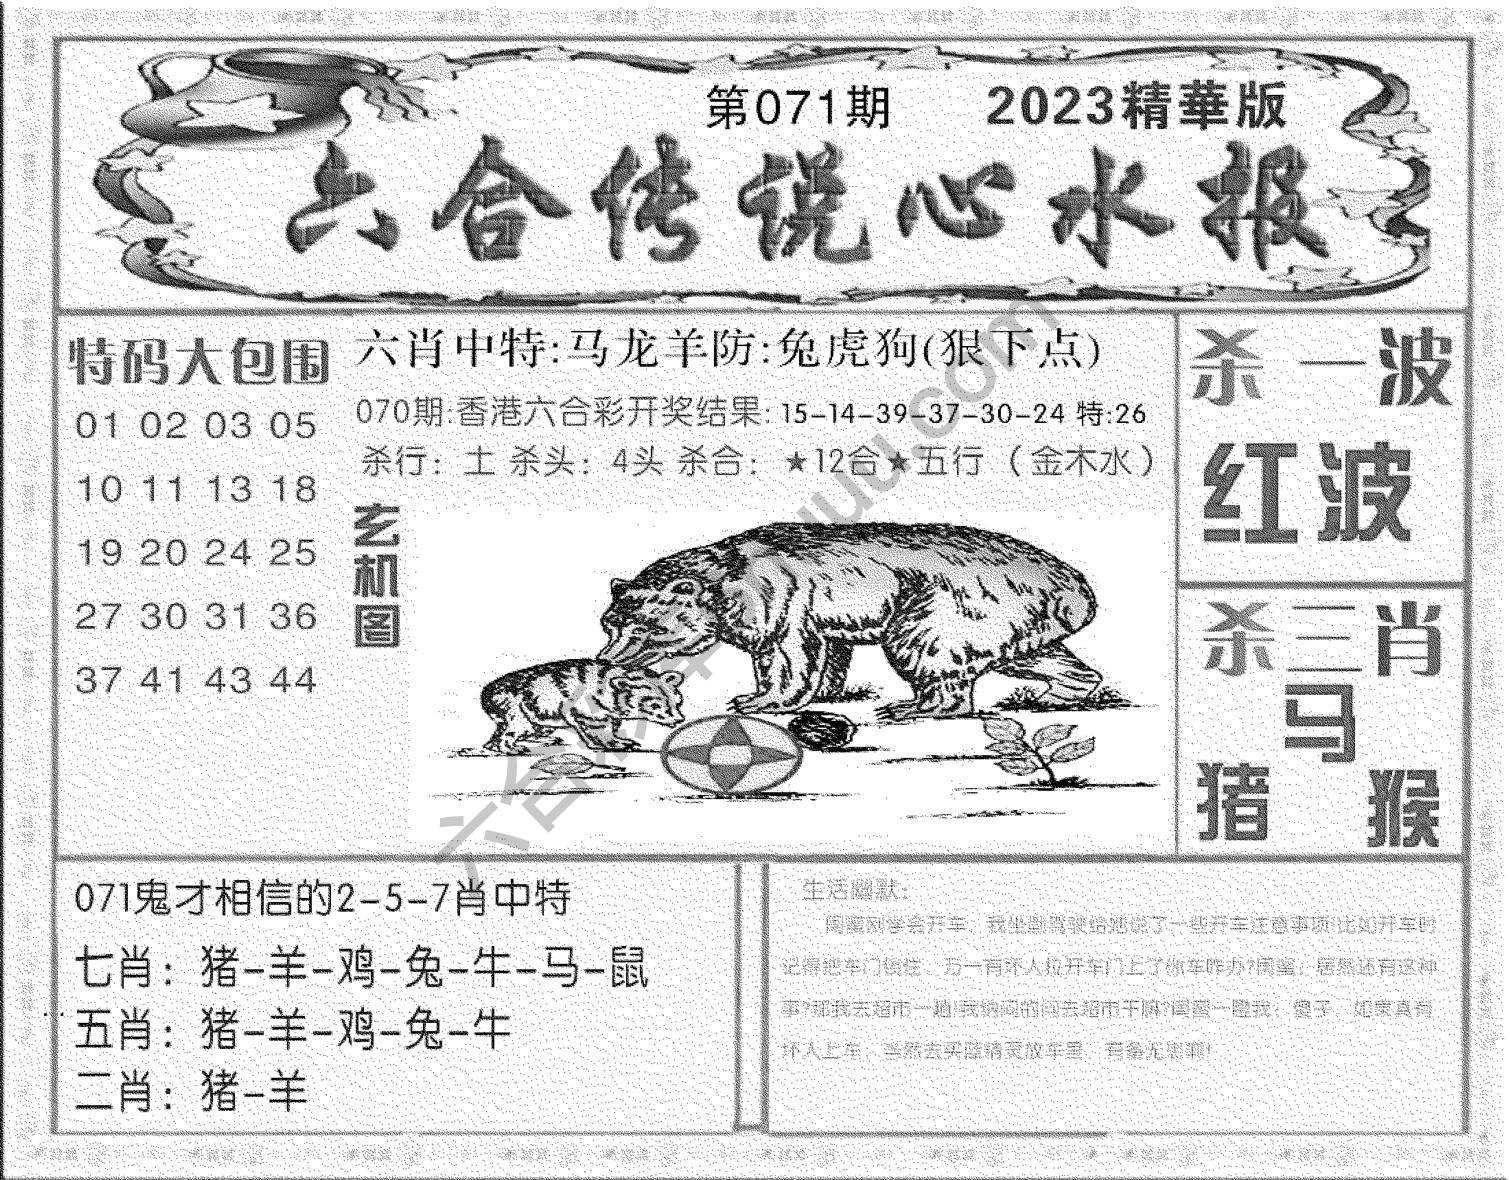 第071期 2023精華版
六合传说心水报
特码大包围
01 02 03 05
10 11 13 18
19 20 24 25
27 30 31 36
37 41 43 44
六肖中特:马龙羊防:兔虎狗(狠下点)
070期:香港六合彩开奖结果: 15-14-39-37-30-24 特:26
杀行：土 杀头：4头 杀合：★12合★五行（金木水）
玄机图
杀一波
红波
杀三肖
马
猪 猴
071鬼才相信的2-5-7肖中特
七肖：猪-羊-鸡-兔-牛-马-鼠
五肖：猪-羊-鸡-兔-牛
二肖：猪-羊
生活幽默：
闺蜜刚学会开车，我坐副驾驶给她说了一些开车注意事项!比如开车时
记得把车门锁住，万一有坏人拉开车门上了你车咋办?闺蜜：居然还有这种
事?那我去超市一趟!我纳闷的问去超市干嘛?闺蜜一瞪我：傻子，如果真有
坏人上车，当然去买蓝精灵放车里，有备无患嘛!
uu.com